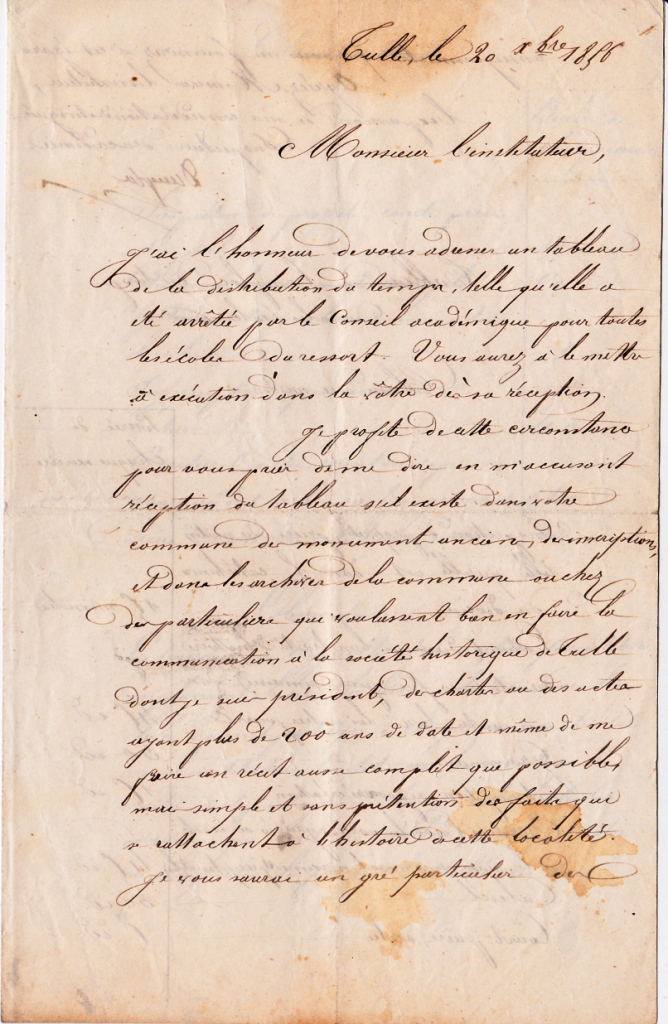 Tulle, le 20 xbre 1856
Monsieur l'instituteur,
J'ai l'honneur de vous adresser un tableau
de la distribution du temps, telle qu'elle a
été arrêtée par le Conseil académique pour toutes
les écoles du ressort. Vous aurez à le mettre
à exécution dans la vôtre dès sa réception.
Je profite de cette circonstance
pour vous prier de me dire en m'accusant
réception du tableau s'il existe dans votre
commune des monuments anciens, des inscriptions,
et dans les archives de la commune ou chez
des particuliers qui voulussent bien en faire la
communication à la société historique de Tulle
dont je suis président, des chartes ou des actes
ayant plus de 200 ans de date et même de me
faire un récit aussi complet que possible,
mais simple et sans prétention des faits qui
se rattachent à l'histoire de cette localité.
Je vous saurai un gré particulier de